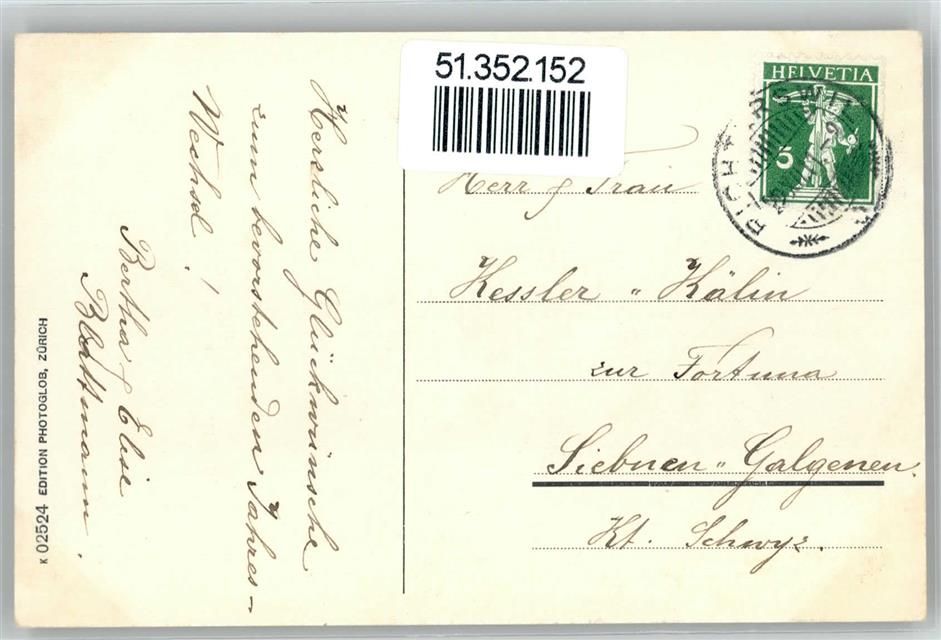 51.352.152
HELVETIA
5
Herzliche Glückwünsche
zum bevorstehenden Jahres-
Wechsel!
Bertha & Elise
Blattmann.
Herr & Frau
Kessler „ Kälin
zur Fortuna
Siebnen „ Galgenen.
Kt. Schwyz.
K 02524 EDITION PHOTOGLOB, ZÜRICH